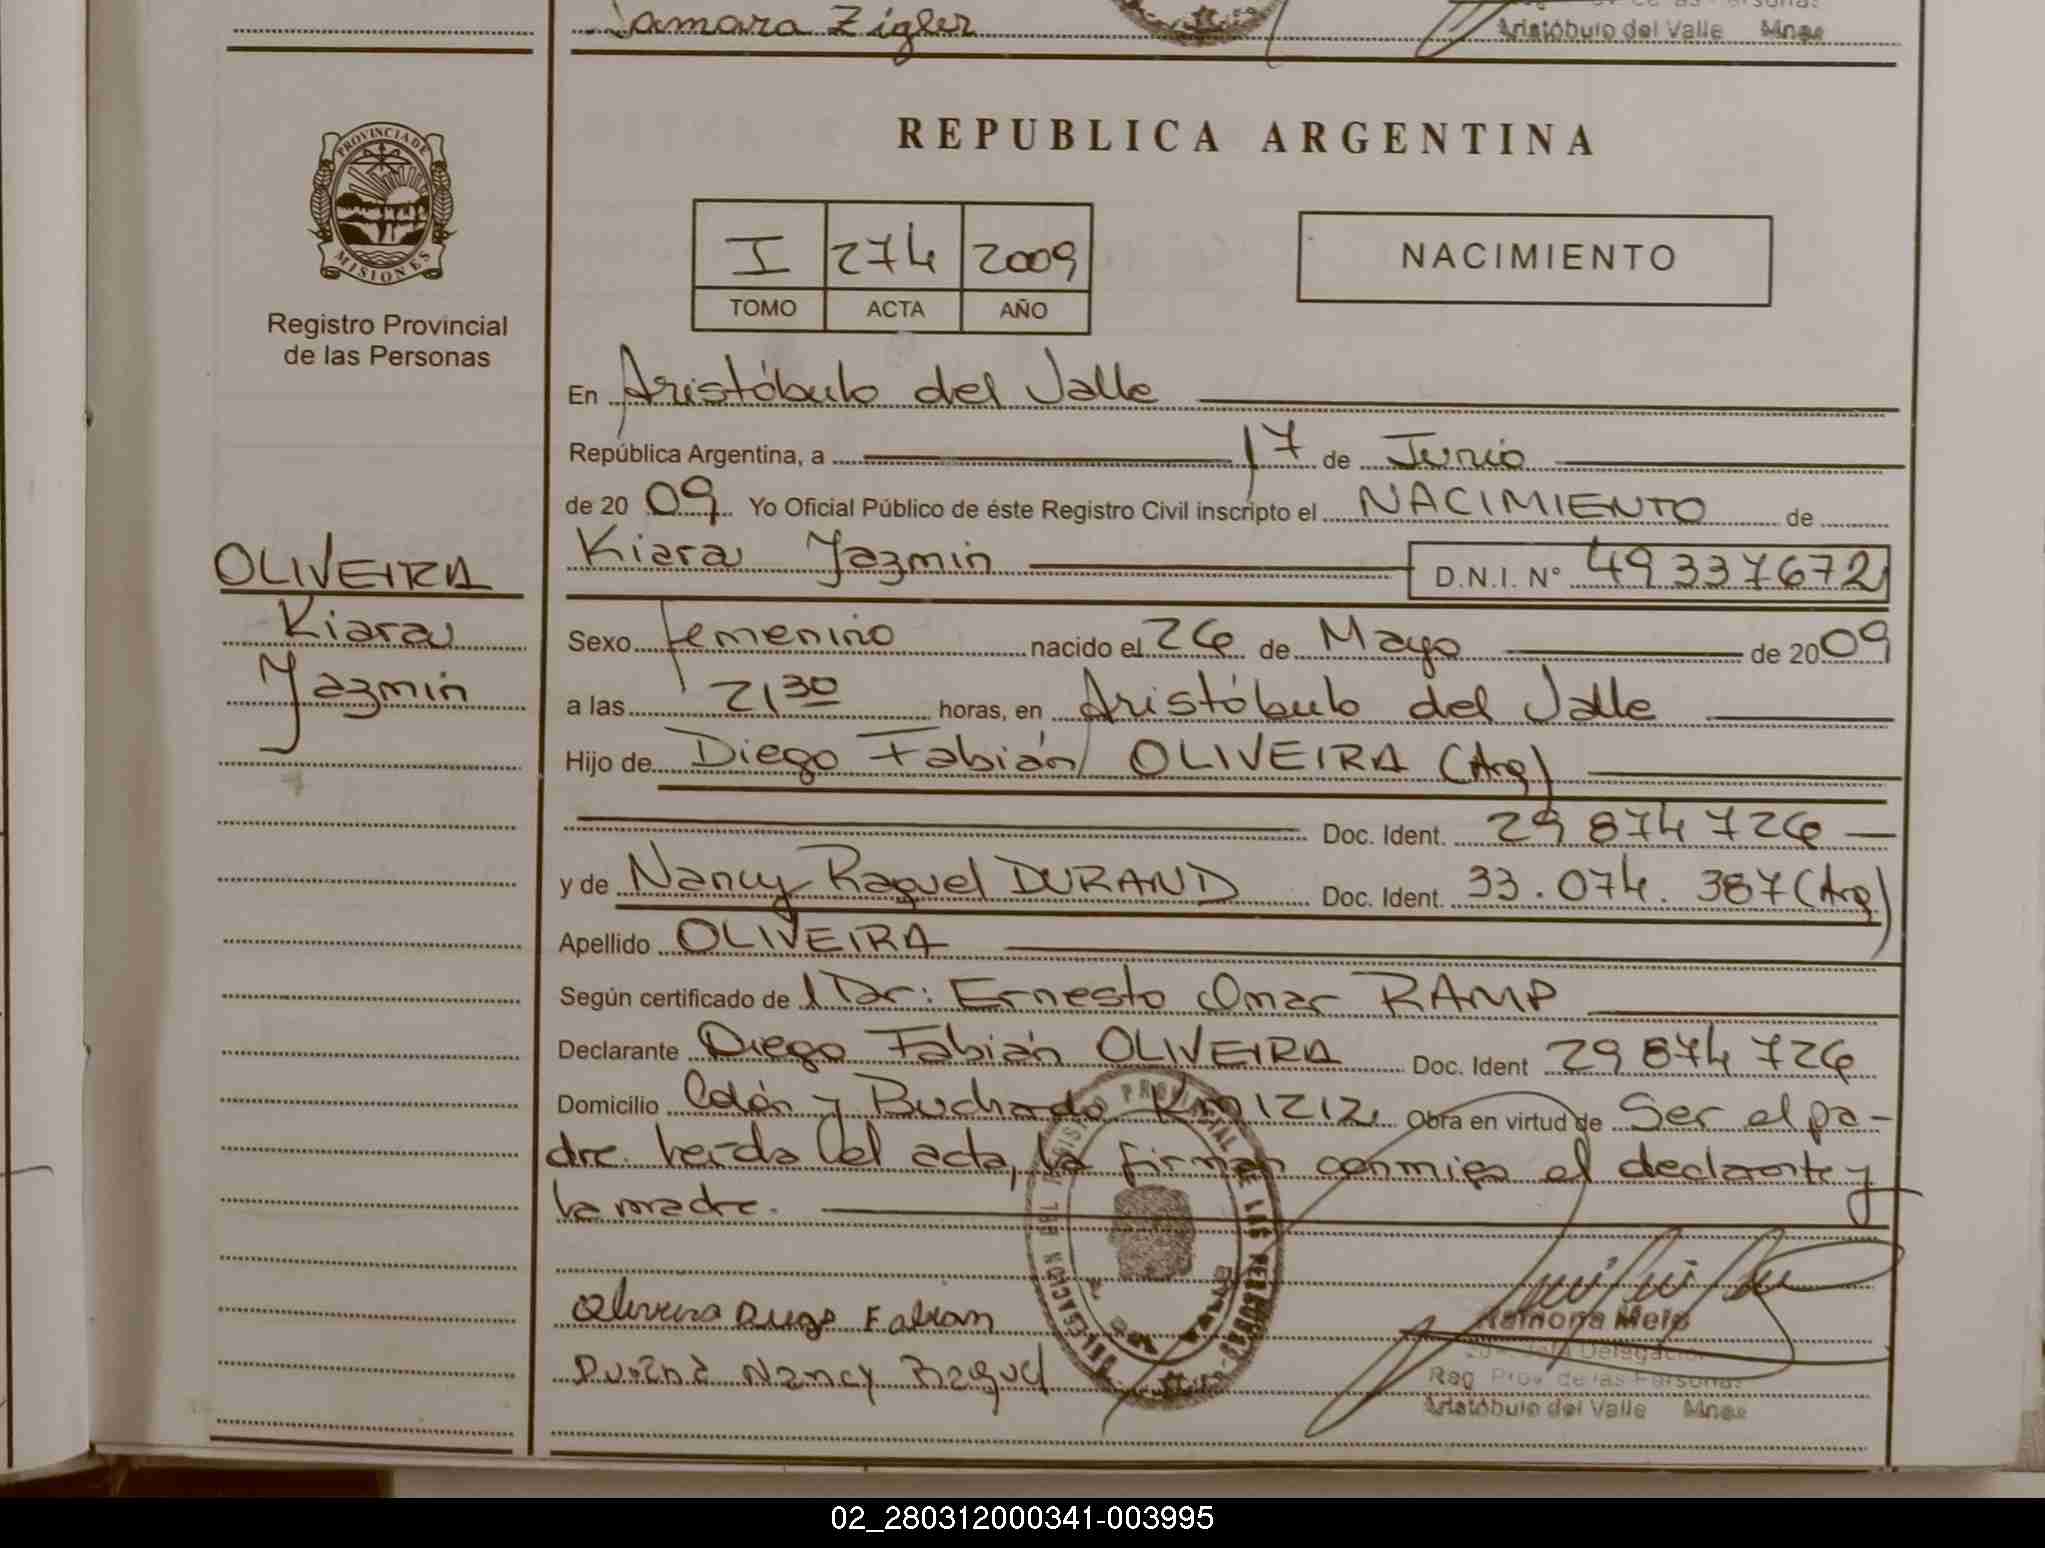 Tamara Zigler
Aristóbulo del Valle Mnes
PROVINCIA DE
MISIONES
Registro Provincial
de las Personas
REPUBLICA ARGENTINA
I 274 2009
TOMO ACTA AÑO
NACIMIENTO
En Aristóbulo del Valle
República Argentina, a 17 de Junio
de 2009 Yo Oficial Público de éste Registro Civil inscripto el NACIMIENTO de
Kiara Yazmin D.N.I. Nº 49337672
OLIVEIRA
Kiara
Yazmin
Sexo femenino nacido el 26 de Mayo de 2009
a las 21 30 horas, en Aristóbulo del Valle
Hijo de Diego Fabián OLIVEIRA (Arg)
Doc. Ident. 29 874 726
y de Nancy Raquel DURAND Doc. Ident. 33.074.387 (Arg)
Apellido OLIVEIRA
Según certificado de Dr: Ernesto Omar RAMP
Declarante Diego Fabián OLIVEIRA Doc. Ident 29 874 726
Domicilio Colón y Buchardo Km 1212 Obra en virtud de Ser el pa-
dre. Leída el acta, la firman conmigo el declarante y
la madre.
Olivera Diego Fabian
Ramona Melo
Delegación
Durand Nancy Raquel
Reg Prov de las Personas
Aristóbulo del Valle Mnes
02_280312000341-003995